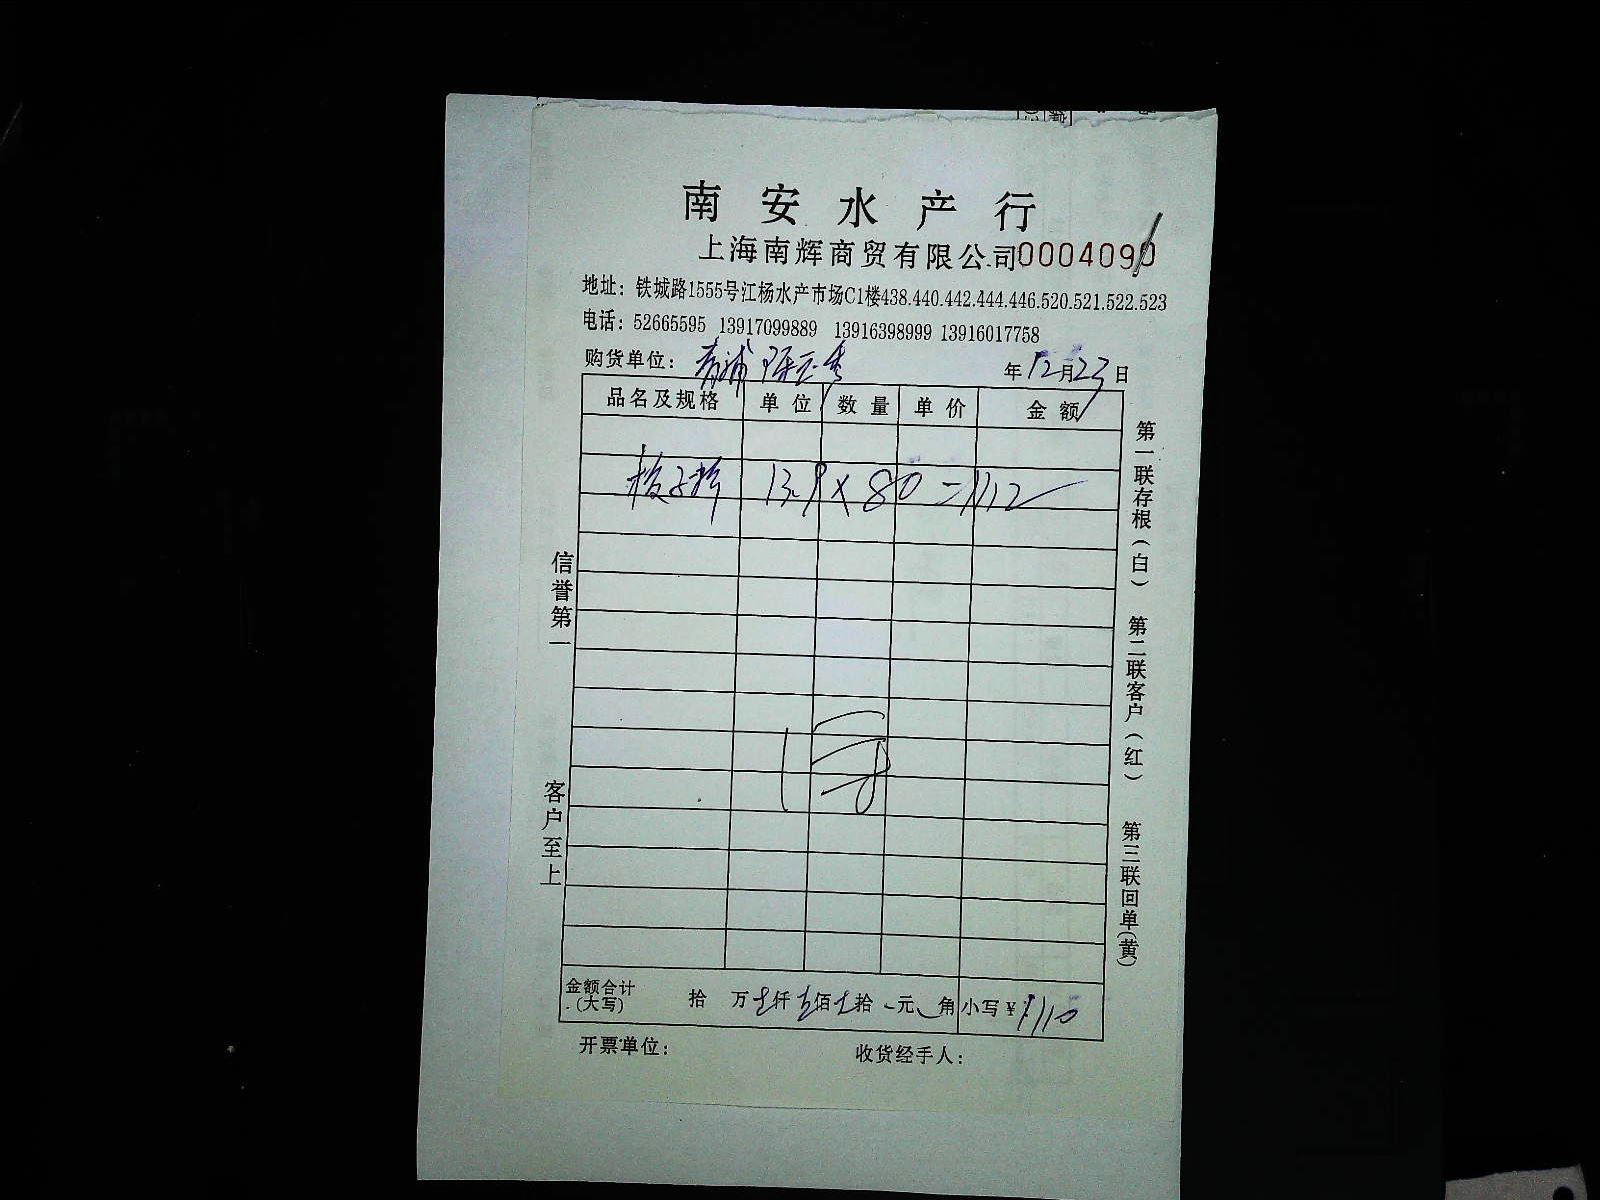 南安水产行
上海南辉商贸有限公司0004090
地址：铁城路1555号江杨水产市场C1楼438.440.442.444.446.520.521.522.523
电话：52665595 13917099889 13916398999 13916017758
购货单位：青浦 年12月23日
品名及规格 单位 数量 单价 金额
13.9×80=1112
金额合计(大写) 拾 万 仟 佰 拾 元 角 小写¥1110
开票单位： 收货经手人：
信誉第一
客户至上
第一联存根(白) 第二联客户(红) 第三联回单(黄)